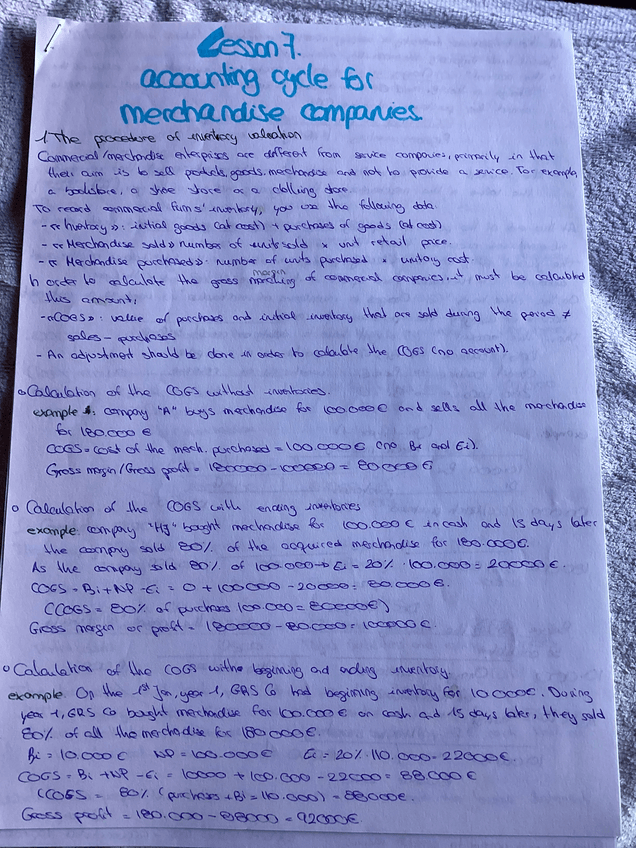 Lesson 7.
accounting cycle for
merchandise companies.
1. The procedure of inventory valuation
Commercial/merchandise enterprises are different from service companies, primarily in that
their aim is to sell products, goods, merchandise and not to provide a service. For example,
a bookstore, a shoe store or a clothing store.
To record commercial firms' inventory, you use the following data:
- «Inventory»: initial goods (at cost) + purchases of goods (at cost)
- «Merchandise sold» number of units sold × unit retail price.
- «Merchandise purchased»: number of units purchased × unitary cost.
In order to calculate the gross margin of commercial companies it must be calculated
this amount;
- «COGS»: value of purchases and initial inventory that are sold during the period ≠
sales - purchases
- An adjustment should be done in order to calculate the COGS (no account).
o Calculation of the COGS without inventories.
example: company "A" buys merchandise for 100.000€ and sells all the merchandise
for 180.000 €
COGS = cost of the merch. purchased = 100.000€ (no Bi and Ei).
Gross margin/Gross profit = 180000 - 100000 = 80000€
o Calculation of the COGS with ending inventories
example: company "Hj" bought merchandise for 100.000€ in cash and 15 days later
the company sold 80% of the acquired merchandise for 180.000€.
As the company sold 80% of 100.000 → Ei = 20% · 100.000 = 20000€.
COGS = Bi + NP - Ei = 0 + 100000 - 20000 = 80.000€.
(COGS = 80% of purchases 100.000 = 80000€)
Gross margin or profit = 180000 - 80000 = 100000€.
o Calculation of the COGS withe beginning and ending inventory.
example: On the 1st Jan, year 1, GRS Co had beginning inventory for 10.000€. During
year 1, GRS Co bought merchandise for 100.000€ on cash and 15 days later, they sold
80% of all the merchandise for 180.000€.
Bi = 10.000€ NP = 100.000€ Ei = 20% · 110.000 = 22000€.
COGS = Bi + NP - Ei = 10000 + 100.000 - 22000 = 88000€
(COGS = 80% (purchases + Bi = 110.000) = 88000€.
Gross profit = 180.000 - 88000 = 92000€